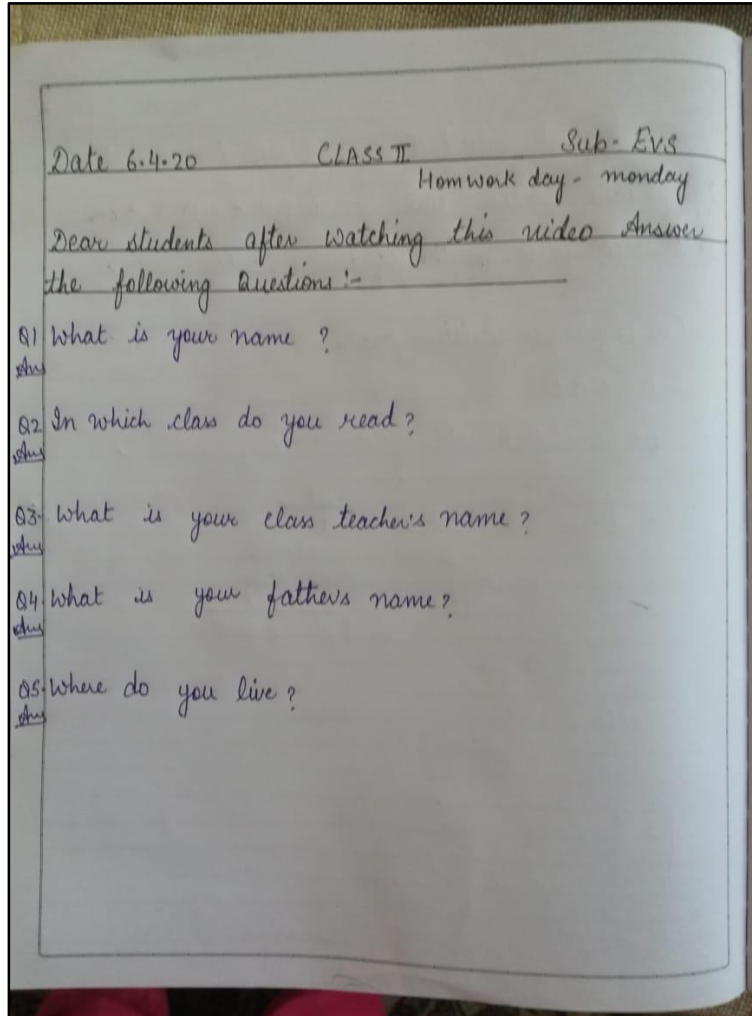 Date 6.4.20 CLASS II Sub- EVS
Homwork day - monday
Dear students after watching this video Answer
the following Questions:-
Q1 What is your name ?
Ans
Q2 In which class do you read?
Ans
Q3. What is your class teacher's name?
Ans
Q4. What is your father's name?
Ans
Q5. Where do you live?
Ans